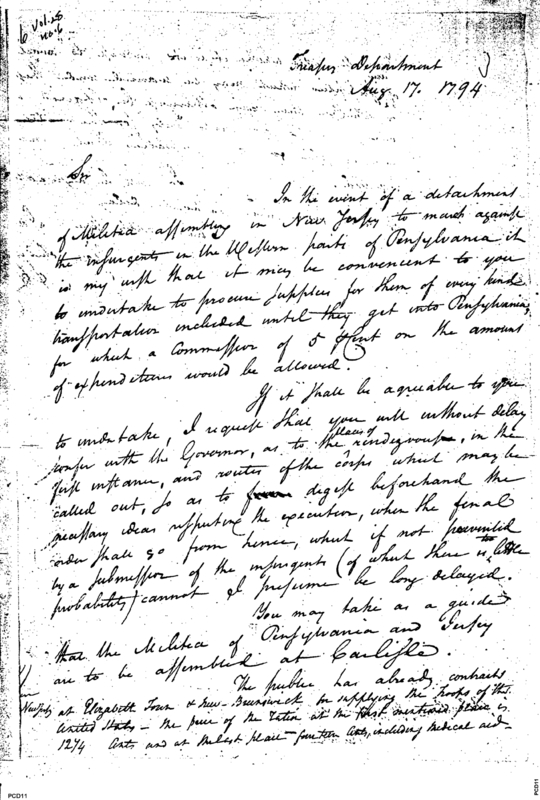 6 Vol. 28
No. 6
Treasy Department
Aug 17. 1794
Sir
In the event of a detachment
of Militia assembling in New Jersey to march against
the insurgents in the Western parts of Pensylvania it
is my wish that it may be convenient to you
to undertake to procure supplies for them of every kind
transportation included until they get into Pensylvania;
for which a Commission of 5 ⅌ Cent on the amount
of expenditures would be allowed.
If it shall be agreeable to you
to undertake, I request that you will without delay
confer with the Governor, as to the places of rendezvous, in the
first instance, and routes of the corps which may be
called out, so as to digest beforehand the
necessary ideas respecting the execution, when the final
order shall go from hence, which if not prevented
by a submission of the insurgents (of which there is little
probability) cannot I presume be long delayed.
You may take as a guide
that the Militia of Pensylvania and Jersey
are to be assembled at Carlisle.
The public has already contracts
at Elizabeth Town & New-Brunswick for supplying the troops of the
United States – the price of the Ration at the first mentioned place is
12¾ Cents and at the last place fourteen Cents, including medical aid–
PCD11
PCD11